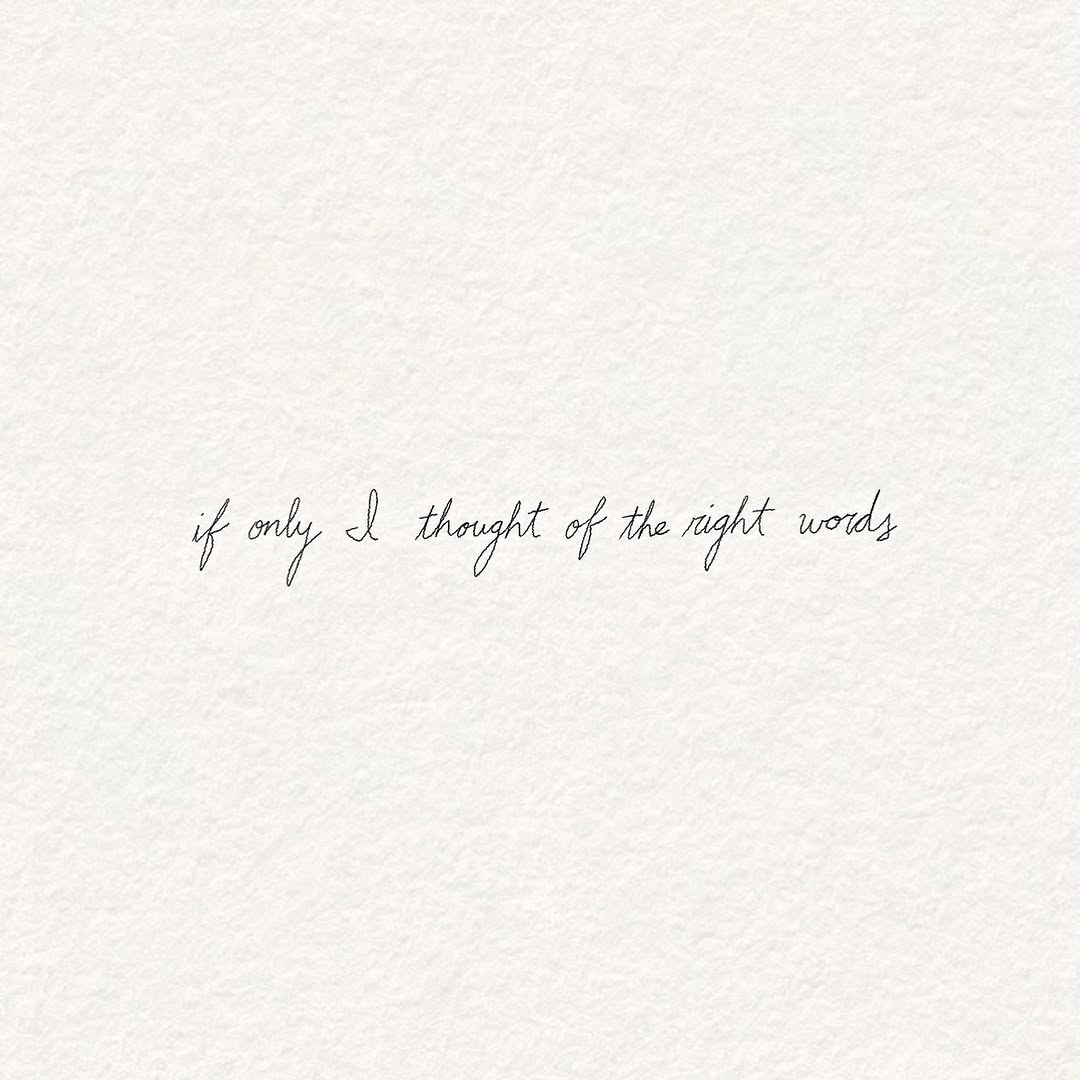 if only I thought of the right words